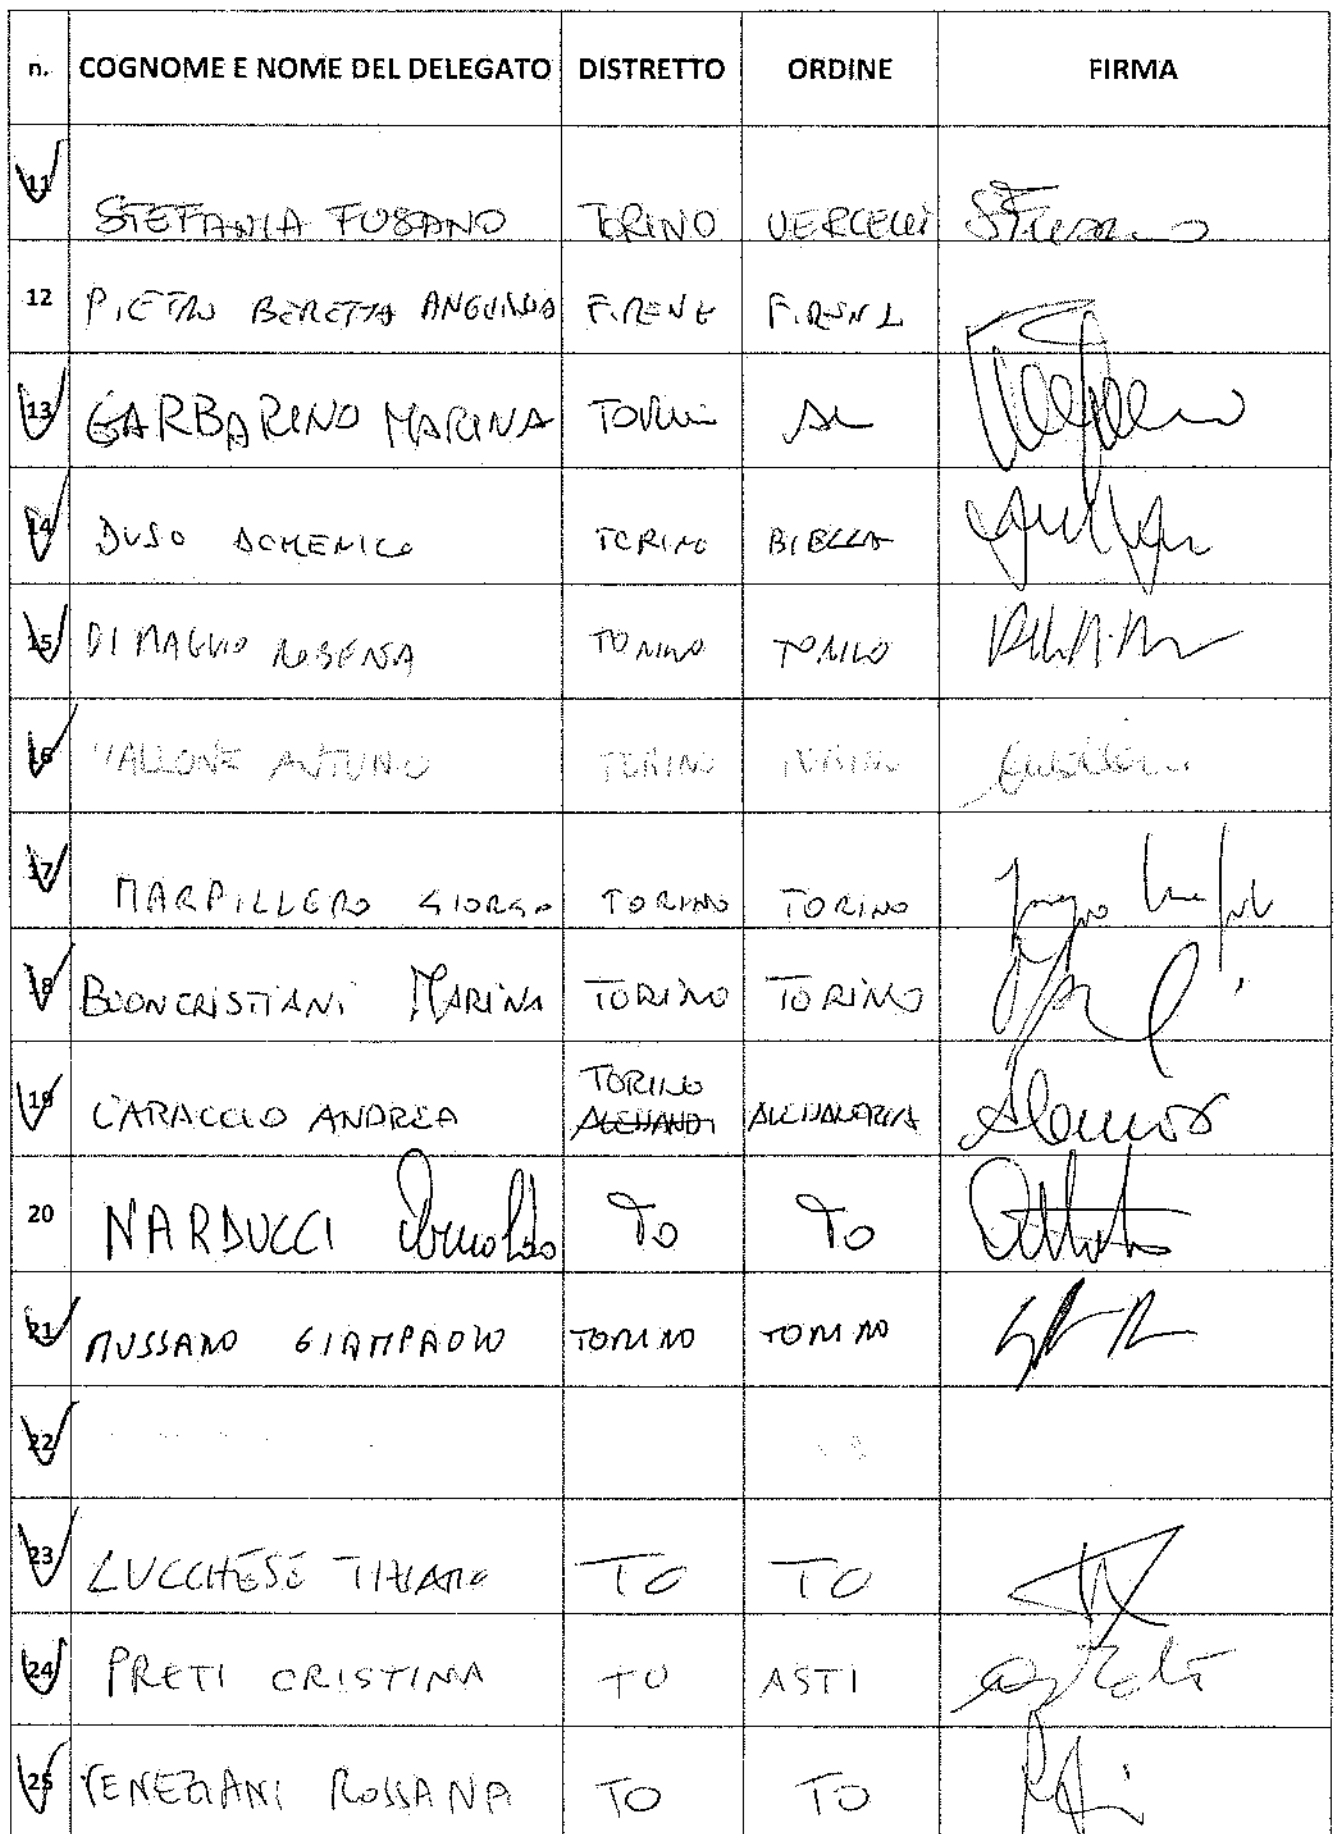 n. COGNOME E NOME DEL DELEGATO DISTRETTO ORDINE FIRMA
11 STEFANIA FUSANO TORINO VERCELLI
12 PIETRO BERETTA ANGUISSOLA FIRENZE FIRENZE
13 GARBARINO MARINA TORINO AL
14 DUSO DOMENICO TORINO BIELLA
15 DI MAGGIO TORINO TORINO
16 VALLONE ANTONIO TORINO TORINO
17 MARPILLERO GIORGIO TORINO TORINO
18 BUONCRISTIANI MARINA TORINO TORINO
TORINO
19 CARACCIOLO ANDREA ALESSANDRIA
20 NARDUCCI TO TO
21 MUSSANO GIAMPAOLO TORINO TORINO
22
23 LUCCHESE TIZIANO TO TO
24 PRETI CRISTINA TO ASTI
25 VENEZIANI ROSSANA TO TO